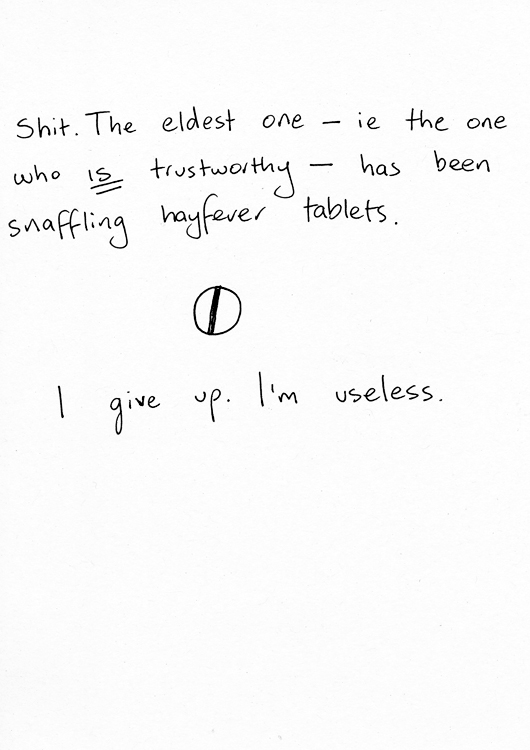 Shit. The eldest one – ie the one
who is trustworthy – has been
snaffling hayfever tablets.
I give up. I'm useless.